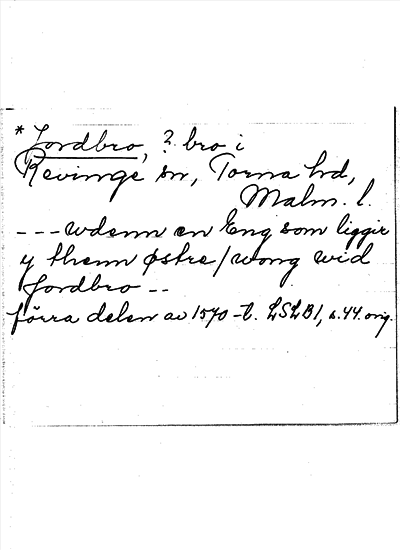 * Jordbro, ? bro i
Revinge sn, Torna hd,
Malm. l.
--- wdenn en Eng som liggir
y thenn østre / wong wid
Jordbro --
förra delen av 1570-t. LSLB1, s.44. orig.